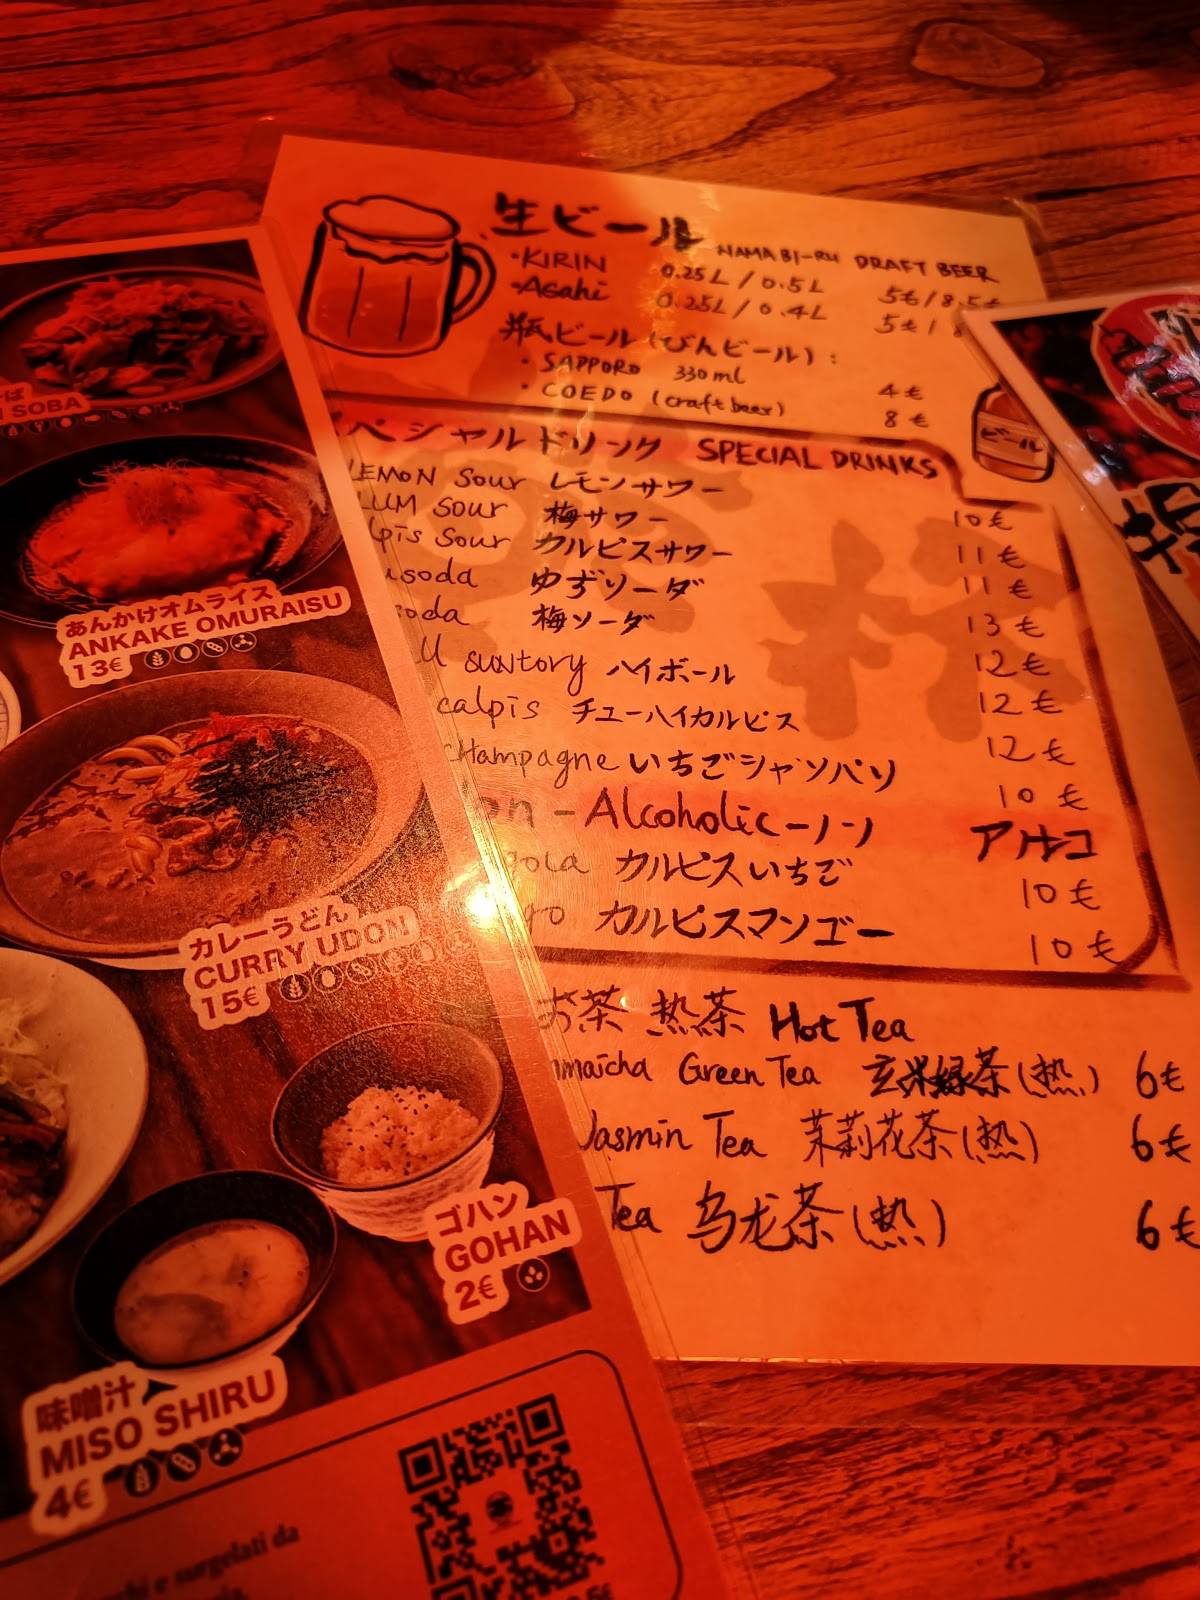 生ビール NAMA BI-RU DRAFT BEER
・KIRIN 0.25L / 0.5L 5€ / 8.5€
・Asahi 0.25L / 0.4L 5€ /
瓶ビール (びんビール) :
・SAPPORO 330ml 4€
・COEDO (craft beer) 8€
ビール
ペシャルドリンク SPECIAL DRINKS
LEMON Sour レモンサワー 10€
LUM Sour 梅サワー 11€
lpis Sour カルピスサワー 11€
soda ゆずソーダ 13€
soda 梅ソーダ 12€
suntory ハイボール 12€
calpis チューハイカルピス 12€
cHampagne いちごシャンパン 10€
on - Alcoholic ーノン アルコ
gola カルピスいちご 10€
go カルピスマンゴー 10€
お茶 热茶 Hot Tea
maicha Green Tea 玄米緑茶(热) 6€
Jasmin Tea 茉莉花茶(热) 6€
Tea 乌龙茶(热) 6€
そば
SOBA
あんかけオムライス
ANKAKE OMURAISU
13€
カレーうどん
CURRY UDON
15€
ゴハン
GOHAN
2€
味噌汁
MISO SHIRU
4€
e surgelati da